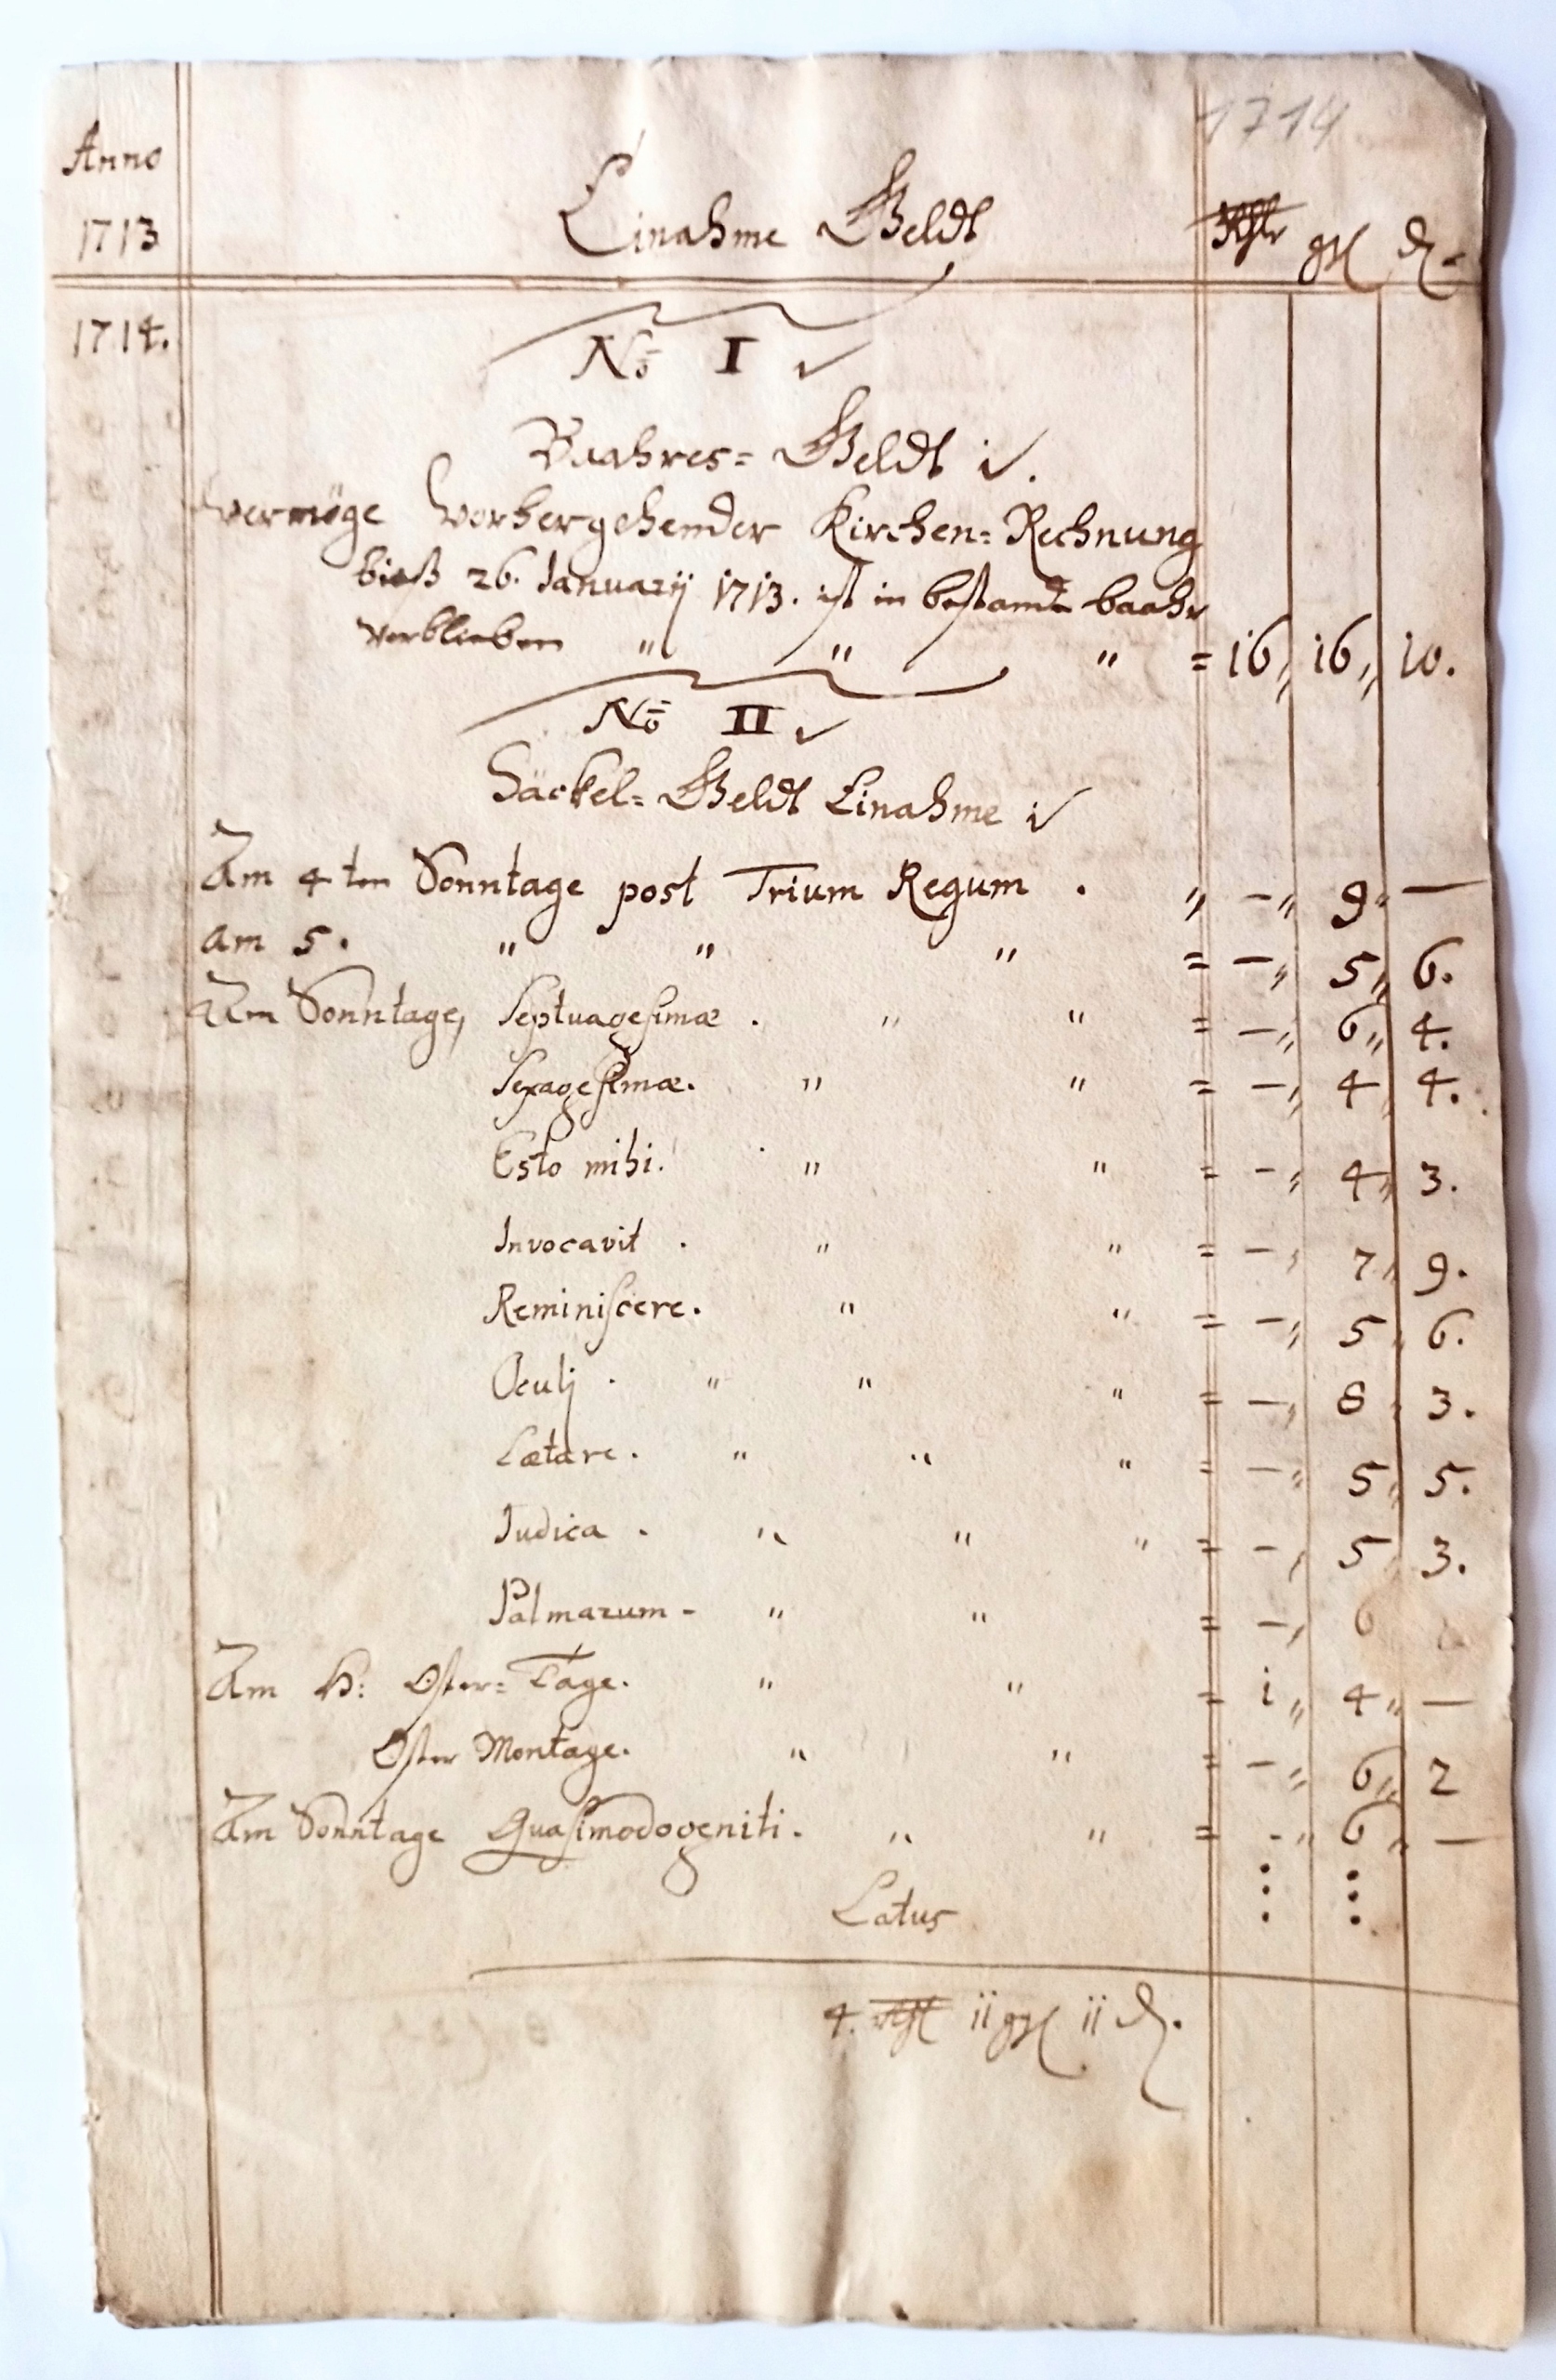 1714
Anno
1713
Einahme Geldt Rthlr gl d.
1714.
No I
Baahres= Geldt
vermöge vorhergehender Kirchen=Rechnung
bieß 26. Januarij 1713. ist in bestandt baahr
verblieben " " " = 16 „ 16 „ 10.
No II
Säckel=Geldt Einahme
Am 4ten Sonntage post Trium Regum . „ — „ 9 „ —
am 5. " " " = — „ 5 „ 6.
Am Sonntage, Septuagesimæ . " " = — „ 6 „ 4.
Sexagesimæ. " " = — „ 4 „ 4.
Esto mihi. " " = — „ 4 „ 3.
Invocavit . " " = — „ 7 „ 9.
Reminiscere. " " = — „ 5 „ 6.
Oculj . " " " = — „ 8 „ 3.
Lætare . " " " = — „ 5 „ 5.
Judica . " " " = — „ 5 „ 3.
Palmarum - " " = — „ 6
Am H: Oster=Tage. " " = 1 „ 4 „ —
Oster Montage. " " = — „ 6 „ 2
Am Sonntage Quasimodogeniti. " " = - „ 6 „ —
Latus
4. rthl 11 gl 11 d.